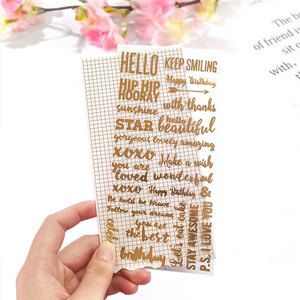 HELLO
KEEP SMILING
HIP HIP
HOORAY
Happy Birthday
sunshine
with thanks
STAR
Hello
beautiful
gorgeous lovely amazing
xoxo
Make a wish
you are
loved
wonderful
xoxo
Happy Birthday
Be bold be brave
Follow your dreams
you are
the best
birthday
STAY AWESOME
P.S. I LOVE YOU
of friend
is